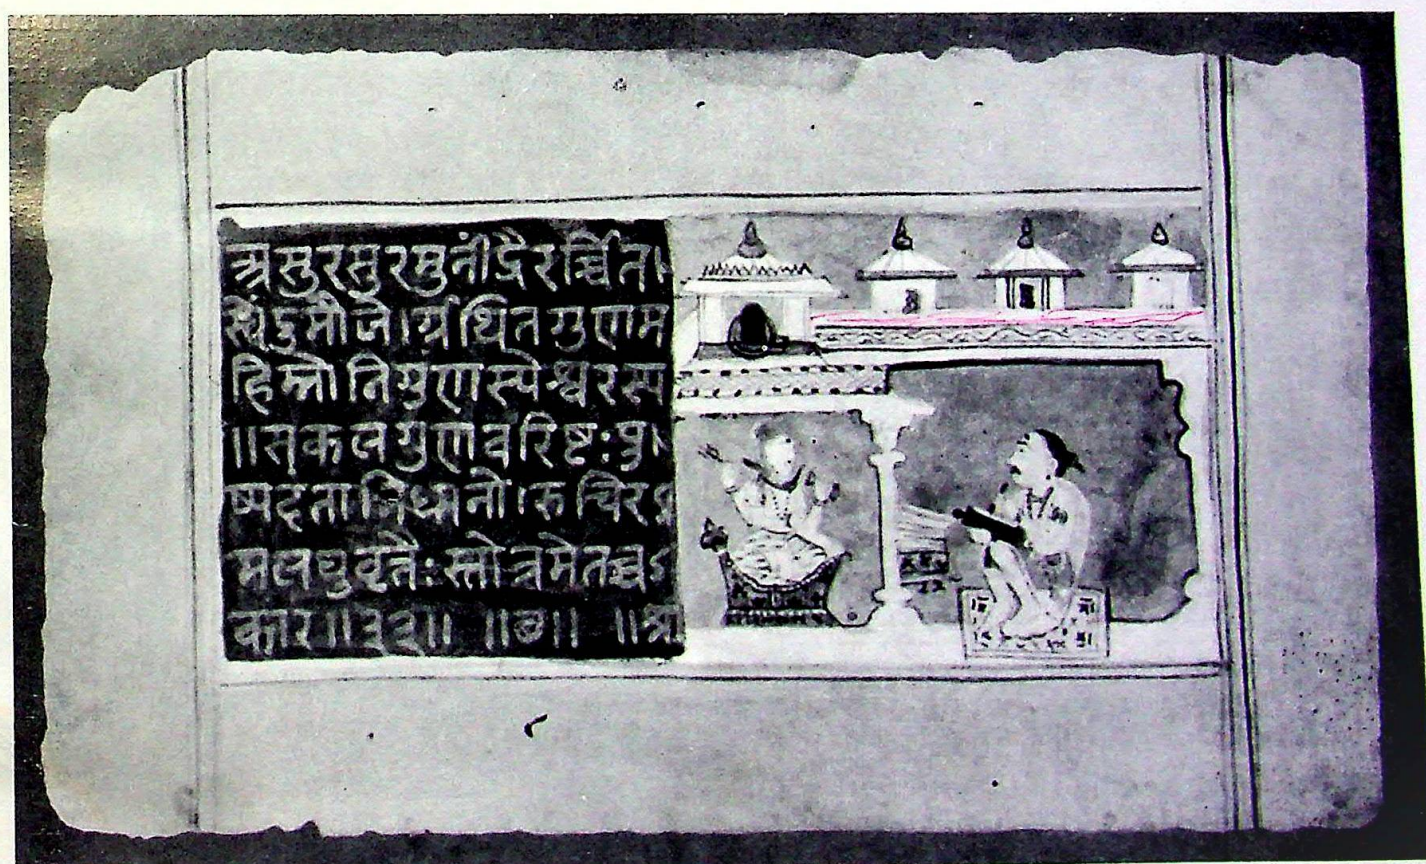 असुरसुरमुनींद्रैरर्च्चित
स्येंदुमौले।र्ग्रंथितगुणम
हिम्नोनिर्गुणस्येश्वरस्य
॥सकलगुणवरिष्टःपु
ष्पदंताभिधानो।रुचिर
मलघुवृत्तैःस्तोत्रमेतच्च
कार॥३३॥ ॥छ॥ ॥श्री